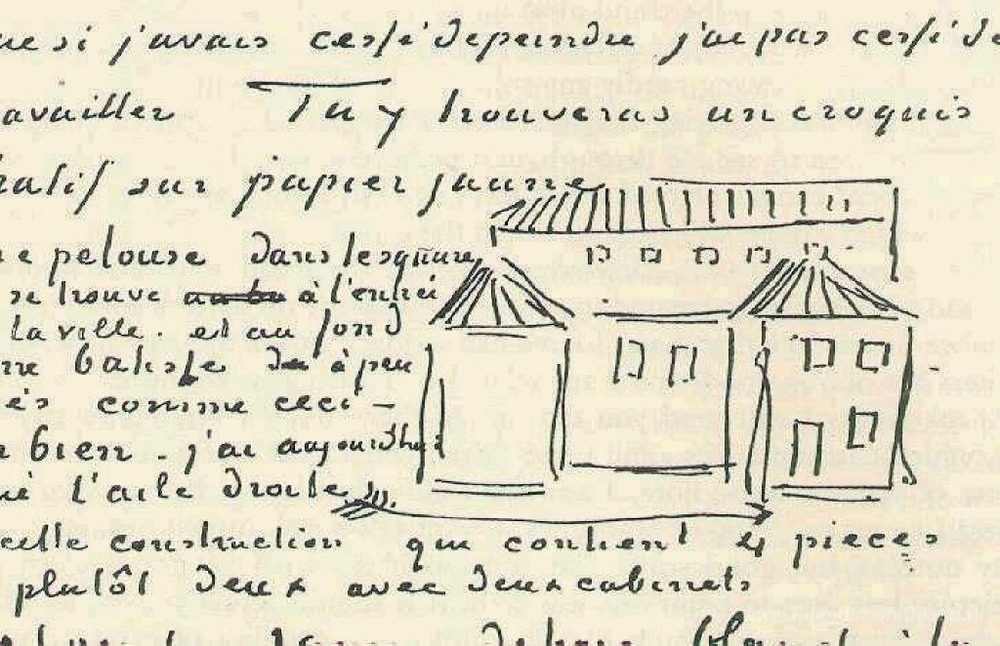 ue si j'avais cessé de peindre j'ai pas cessé de
availler Tu y trouveras un croquis
hatif sur papier jaune
e pelouse dans le square
se trouve à l'entrée
la ville. et au fond
ne batisse à peu
es comme ceci –
bien . j'ai aujourd'hui
l'aile droite
cette construction qui contient 4 pieces
plutôt deux avec deux cabinets